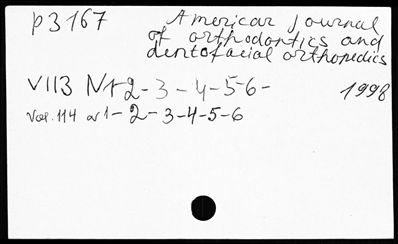 P3167 American journal
of orthodontics and
dentofacial orthopedics
V113 N1-2-3-4-5-6- 1998
Vol. 114 N1-2-3-4-5-6